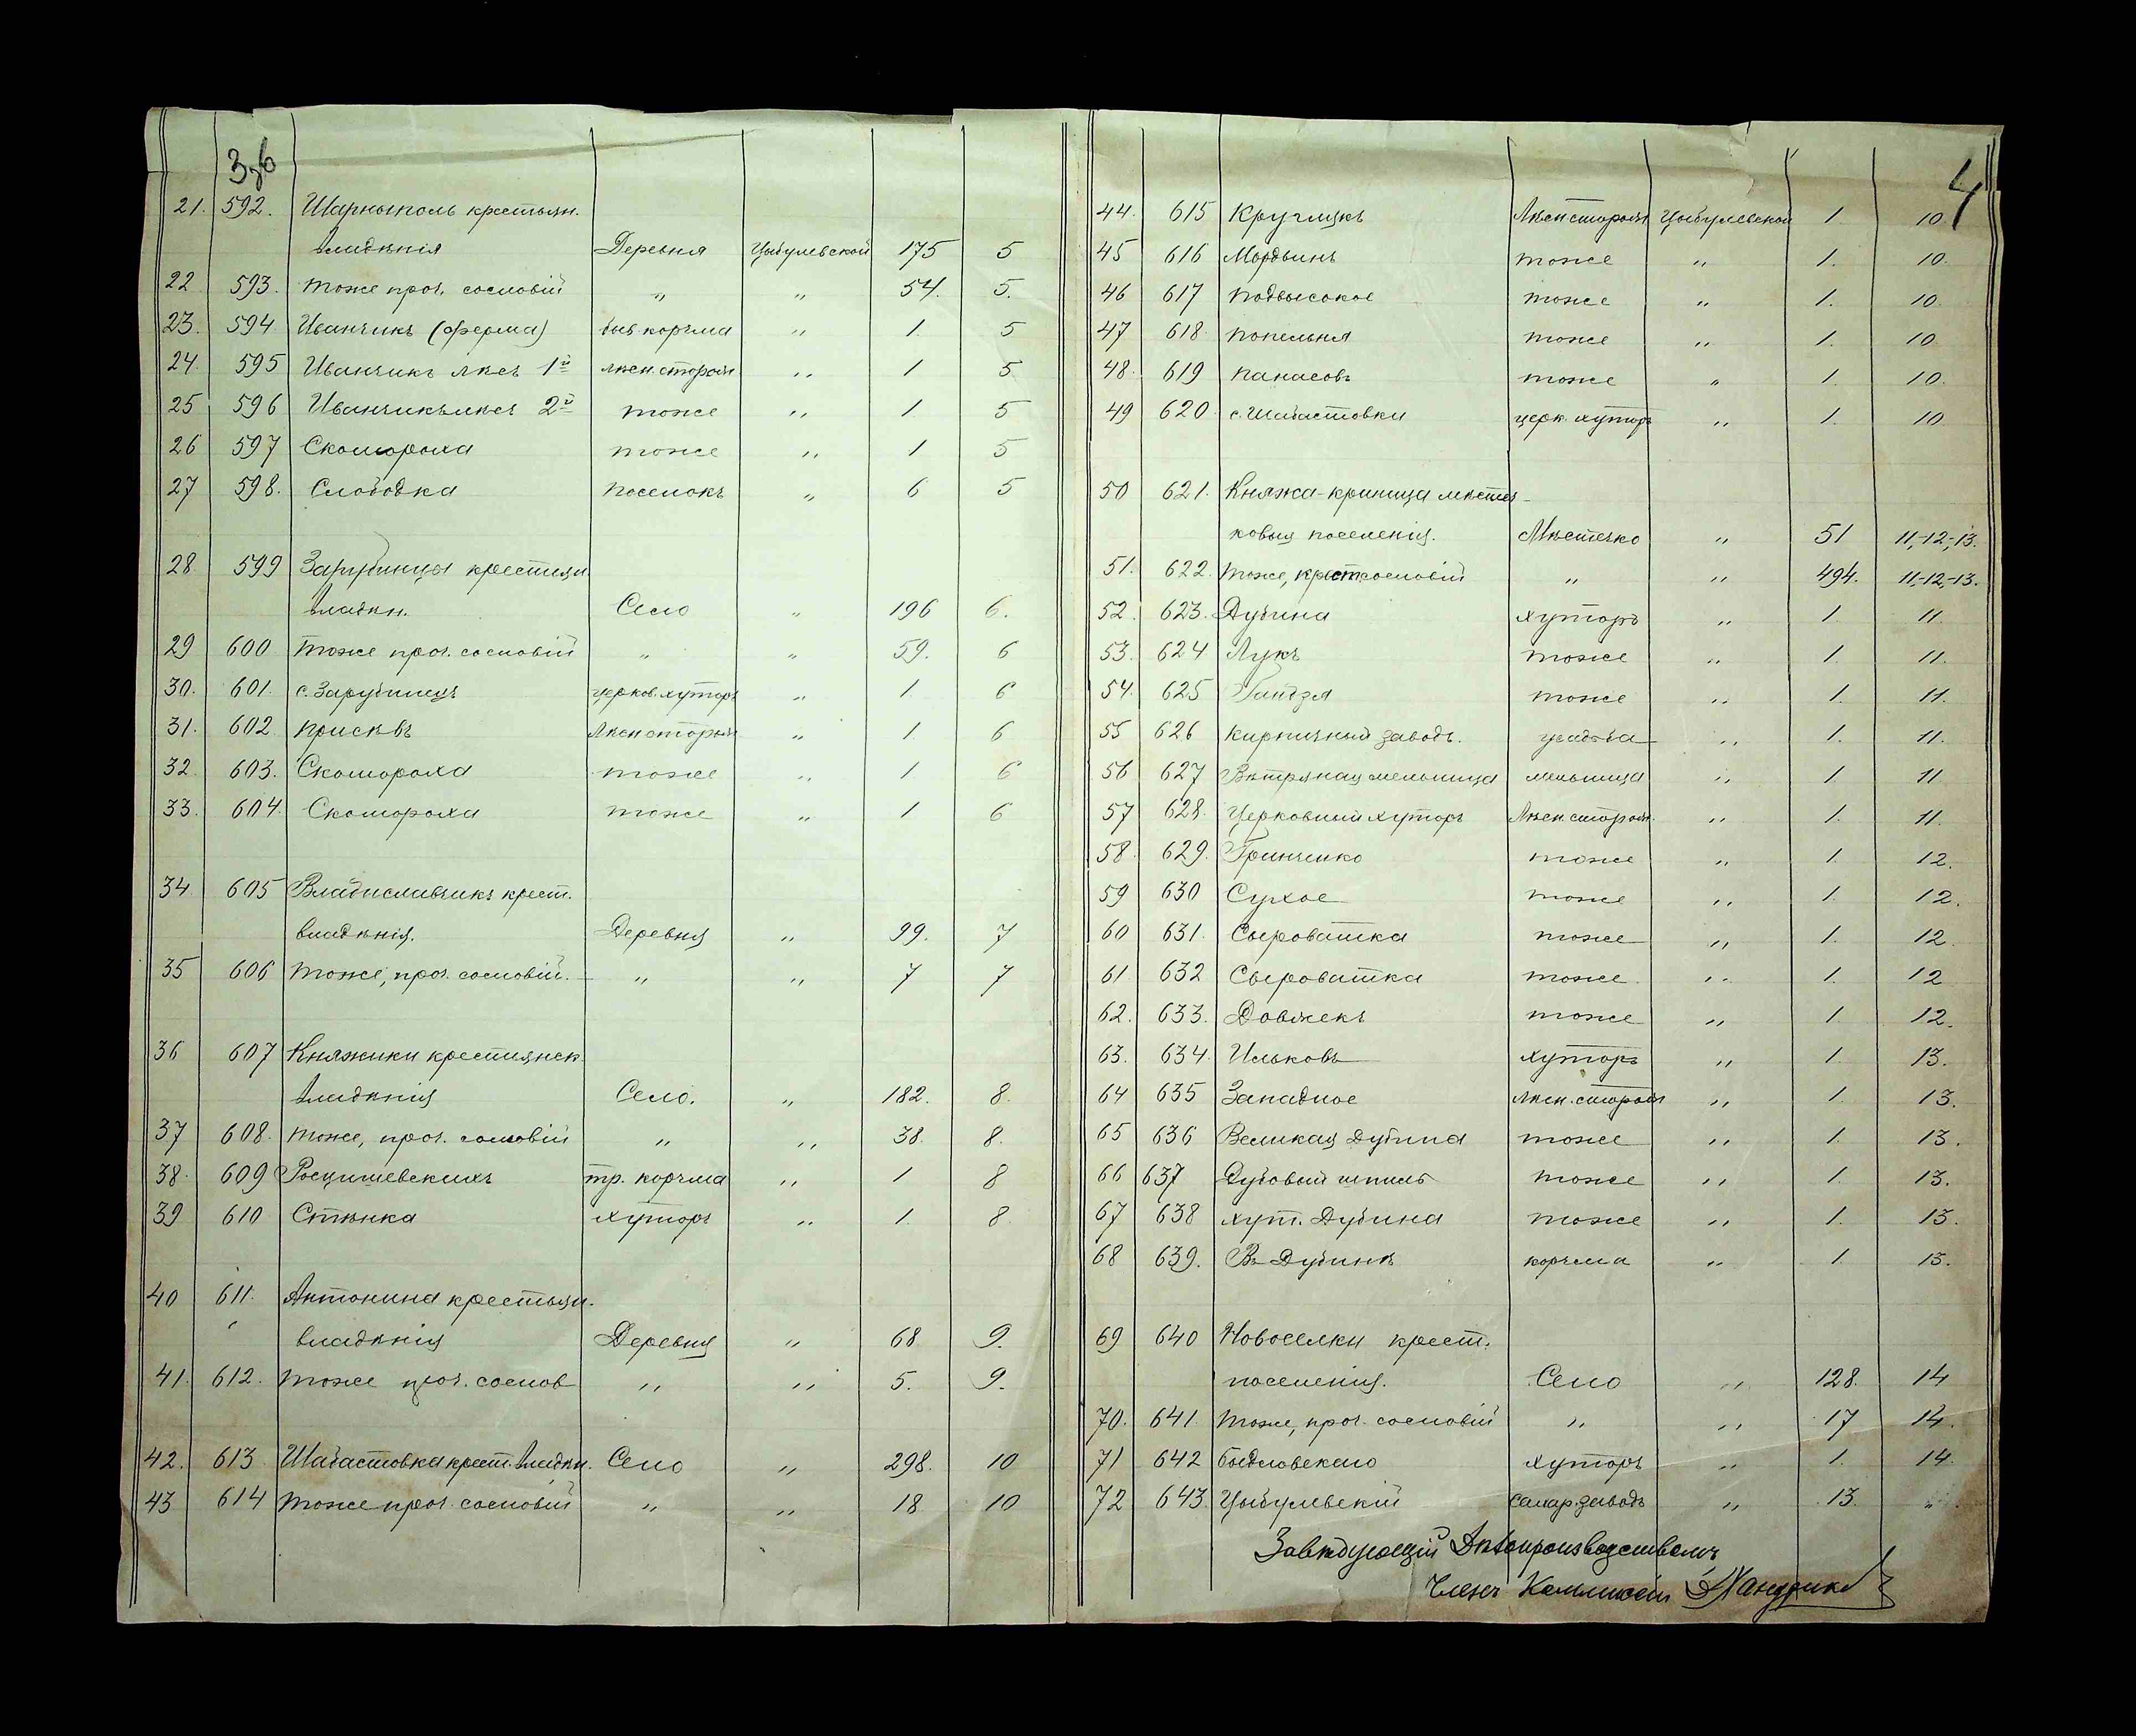 3об
21. 592. Шарнополь крестьян.
владѣнія Деревня Цыбулевской 175 5
22 593. тоже проч. сословій „ „ 54. 5.
23. 594 Иванчикъ (ферма) быв. корчма „ 1. 5
24. 595 Иванчикъ лѣсъ 1й лѣсн. сторож „ 1 5
25 596 Иванчикъ лѣсъ 2й тоже „ 1 5
26 597 Скомороха тоже „ 1 5
27 598. Слободка поселокъ „ 6 5
28. 599 Зарубинцы крестьян.
владѣн. Село „ 196 6.
29 600 тоже проч. сословій „ „ 59. 6
30. 601. с. Зарубинецъ церков. хуторъ „ 1. 6
31. 602 Присѣвъ Лѣсн сторож „ 1 6
32. 603. Скомороха тоже „ 1 6
33. 604. Скомороха тоже „ 1 6
34. 605 Владиславчикъ крест.
владѣнія. Деревня „ 99. 7
35 606 тоже, проч. сословій. „ „ 7 7
36 607 Княжики крестьянск
владѣнія Село. „ 182. 8.
37 608. тоже, проч. сословій „ „ 38. 8.
38. 609 Росцишевскихъ тр. корчма „ 1 8
39 610 Стѣнка хуторъ „ 1. 8.
40 611. Антонина крестьян.
владѣнія Деревня „ 68 9.
41. 612. тоже проч. сослов „ „ 5. 9.
42. 613 Шабастовка крест. владѣн. Село „ 298. 10
43 614 тоже проч. сословій „ „ 18. 10
4
44. 615 Круглукъ Лѣсн сторож Цыбулевской 1. 10.
45 616 Мордвинъ тоже „ 1. 10.
46 617 Подвысокое тоже „ 1. 10.
47 618. Попельня тоже „ 1. 10
48. 619 Панасовъ тоже „ 1. 10.
49 620. с. Шабастовки церк. хуторъ „ 1. 10
50 621. Княжа-криница мѣстеч-
ковыя поселенія. Мѣстечко „ 51 11,-12,-13.
51. 622. тоже, крест. сословій „ „ 494. 11,-12,-13.
52. 623. Дубина хуторъ „ 1. 11
53. 624 Лукъ тоже „ 1. 11.
54. 625 тоже „ 1. 11.
55 626 Кирпичный заводъ. усадьба „ 1. 11.
56 627 Вѣтряная мельница мельница „ 1 11
57 628. Церковный хуторъ Лѣсн сторож. „ 1. 11.
58. 629. Гринченко тоже „ 1. 12.
59 630 Сухое тоже „ 1. 12.
60 631. Сыроватка тоже „ 1. 12
61 632 Сыроватка тоже. „ 1. 12
62. 633. Довжекъ тоже „ 1 12.
63. 634. Ильковъ хуторъ „ 1. 13.
64 635 Западное лѣсн. сторож „ 1. 13.
65 636 Великая Дубина тоже „ 1. 13.
66 637 Дубовый шпиль тоже „ 1. 13.
67 638 хут. Дубина тоже „ 1. 13.
68 639. Въ Дубинѣ корчма „ 1. 13.
69 640 Новоселки крест.
поселенія. Село „ 128. 14
70. 641. тоже, проч. сословій „ „ 17 14.
71 642 хуторъ „ 1. 14.
72 643. Цыбулевскій сахар. заводъ „ 13. „
Завѣдующій Дѣлопроизводствомъ
Членъ Коммисіи